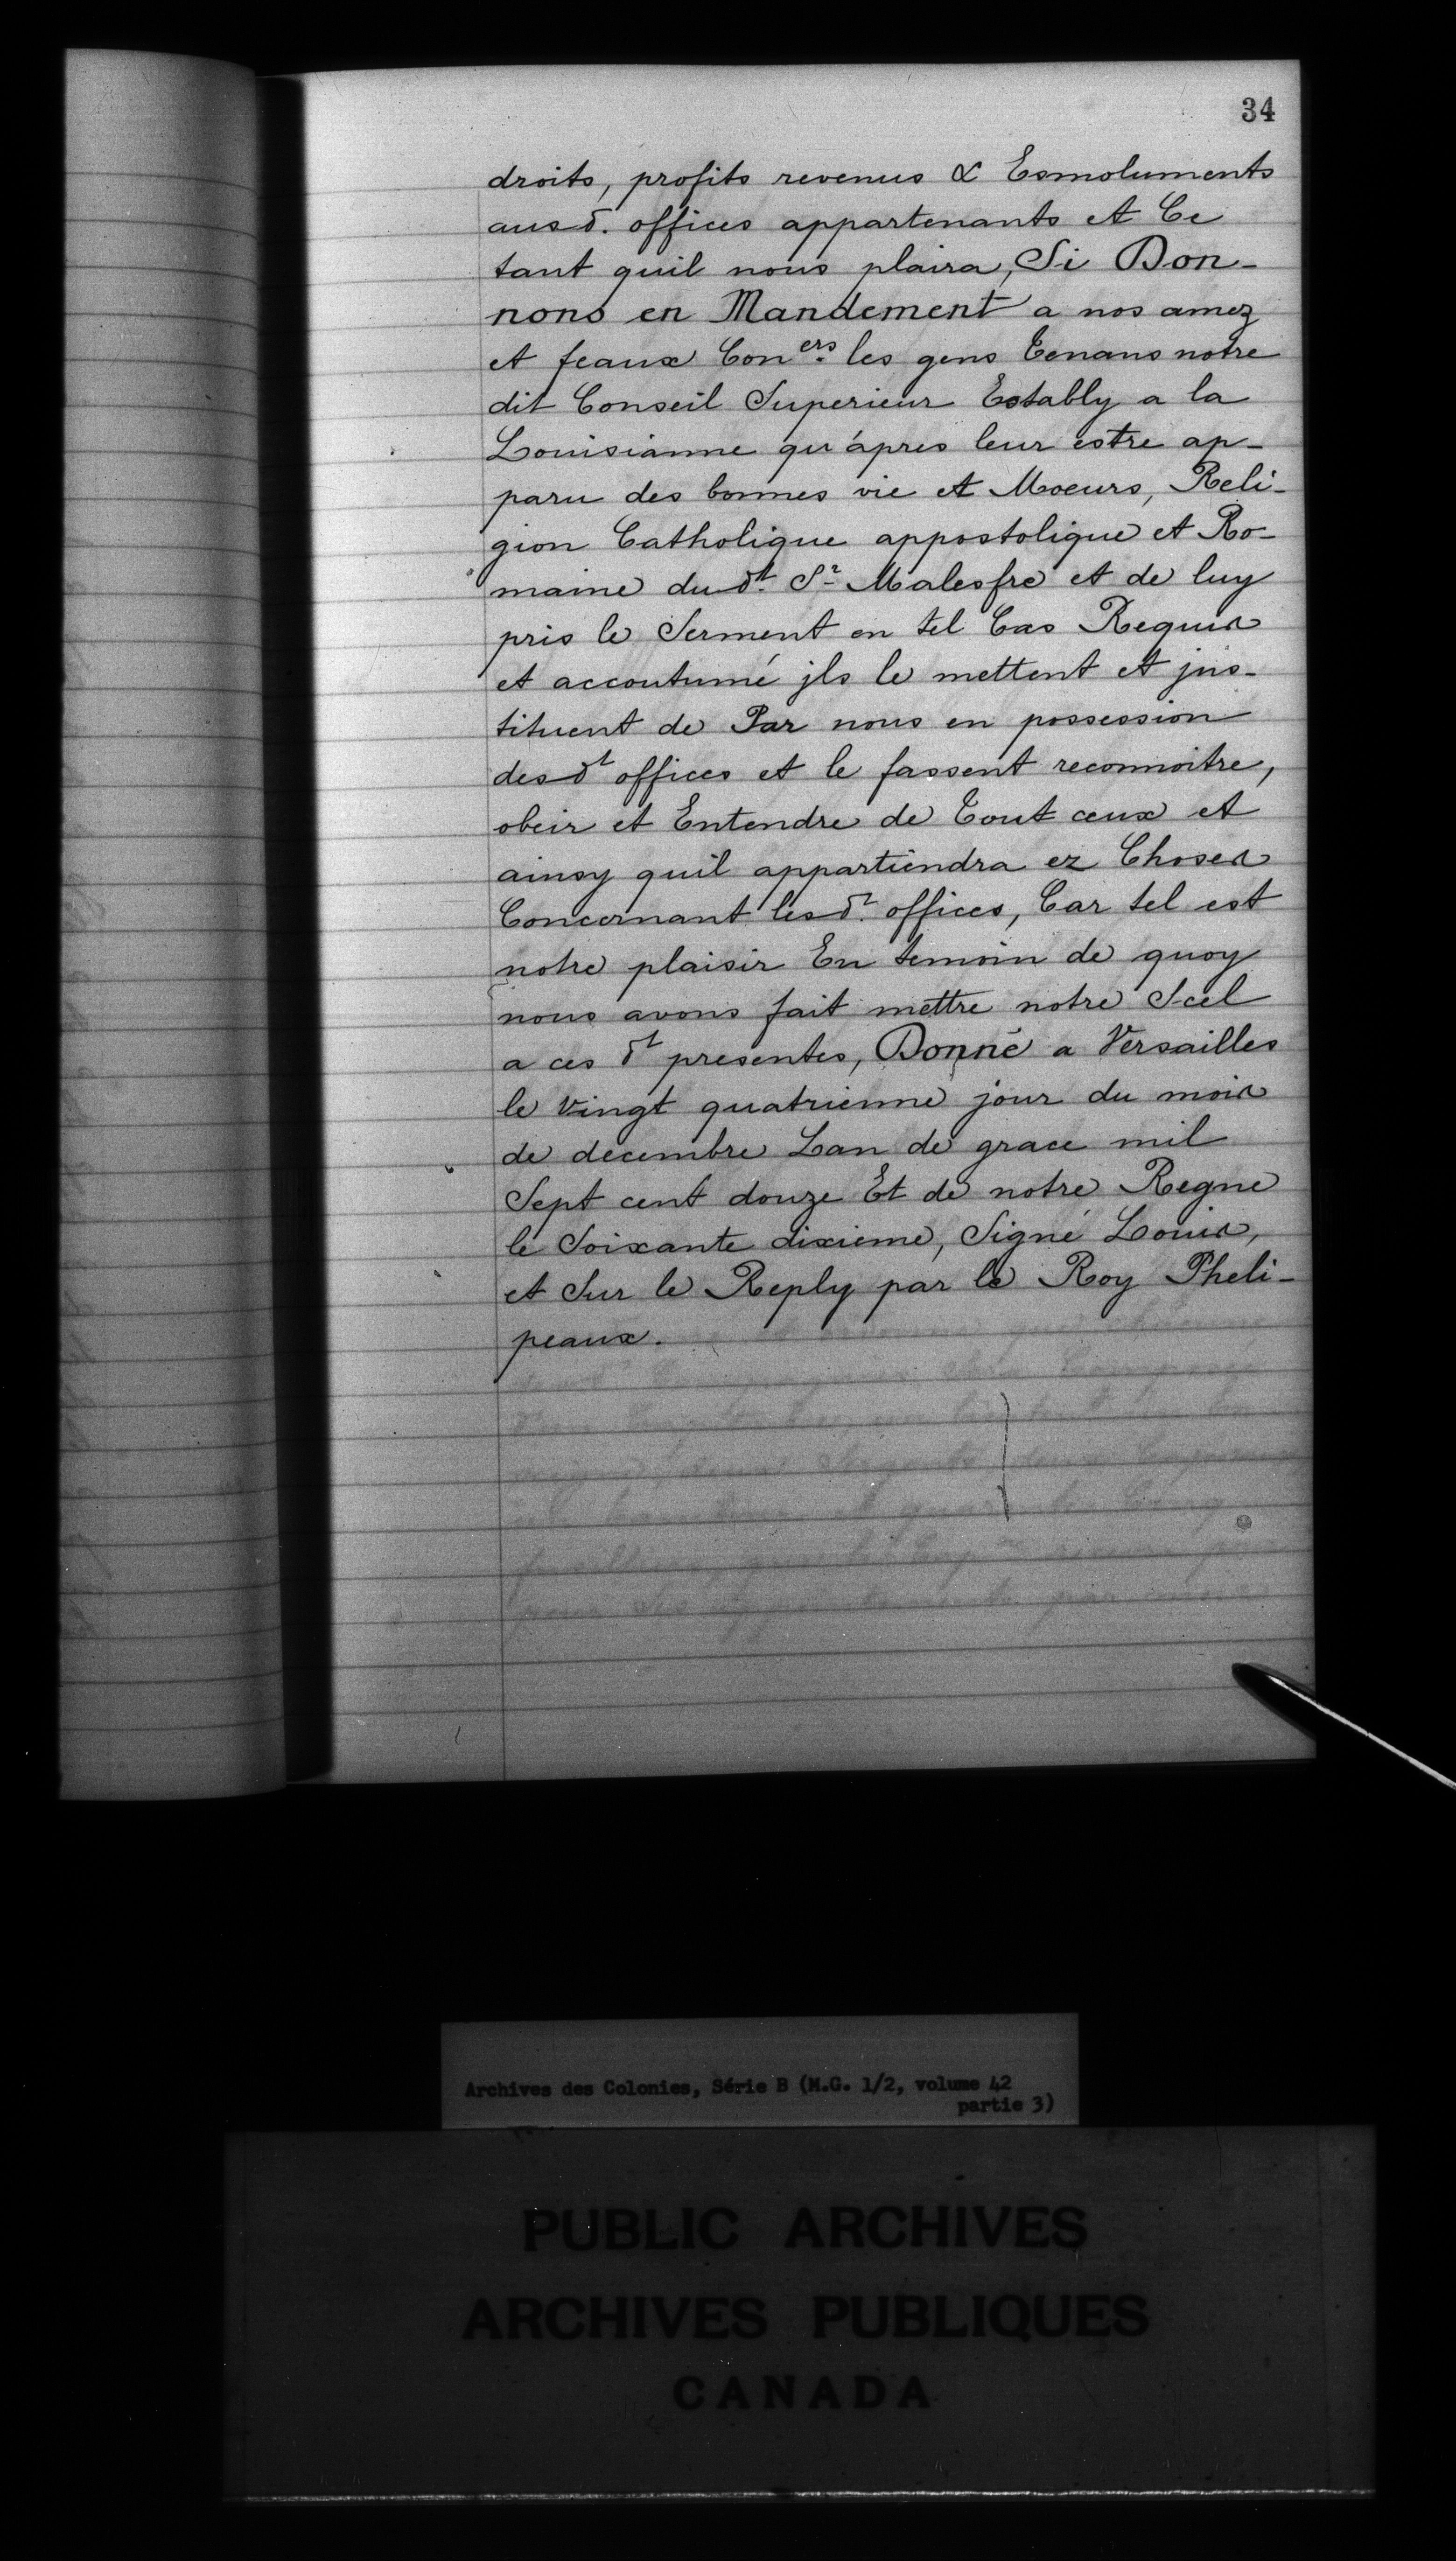 34
droits, profits revenus & Esmoluments
ausd. offices appartenants et Ce
tant quil nous plaira, Si Don-
nons en Mandement a nos amez
et feaux Con.ers les gens Tenans notre
dit Conseil Superieur Estably a la
Louisianne qu'apres leur estre ap-
paru des bonnes vie et Moeurs, Reli-
gion Catholique appostolique et Ro-
maine dudt. Sr. Malesfre et de luy
pris le Serment en tel Cas Requis
et accoutumé jls le mettent et jns-
tituent de Par nous en possession
desdt offices et le fassent reconnoitre,
obeir et Entendre de Tout ceux et
ainsy quil appartiendra ez Choses
Concernant lesdt. offices, Car tel est
notre plaisir En temoin de quoy
nous avons fait mettre notre Scel
a ces dt presentes, Donné a Versailles
le vingt quatrienne jour du mois
de decembre Lan de grace mil
Sept cent douze Et de notre Regne
le Soixante dixieme, Signé Louis,
et Sur le Reply par le Roy Pheli-
peaux.
Archives des Colonies, Série B (M.G. 1/2, volume 42
partie 3)
PUBLIC ARCHIVES
ARCHIVES PUBLIQUES
CANADA